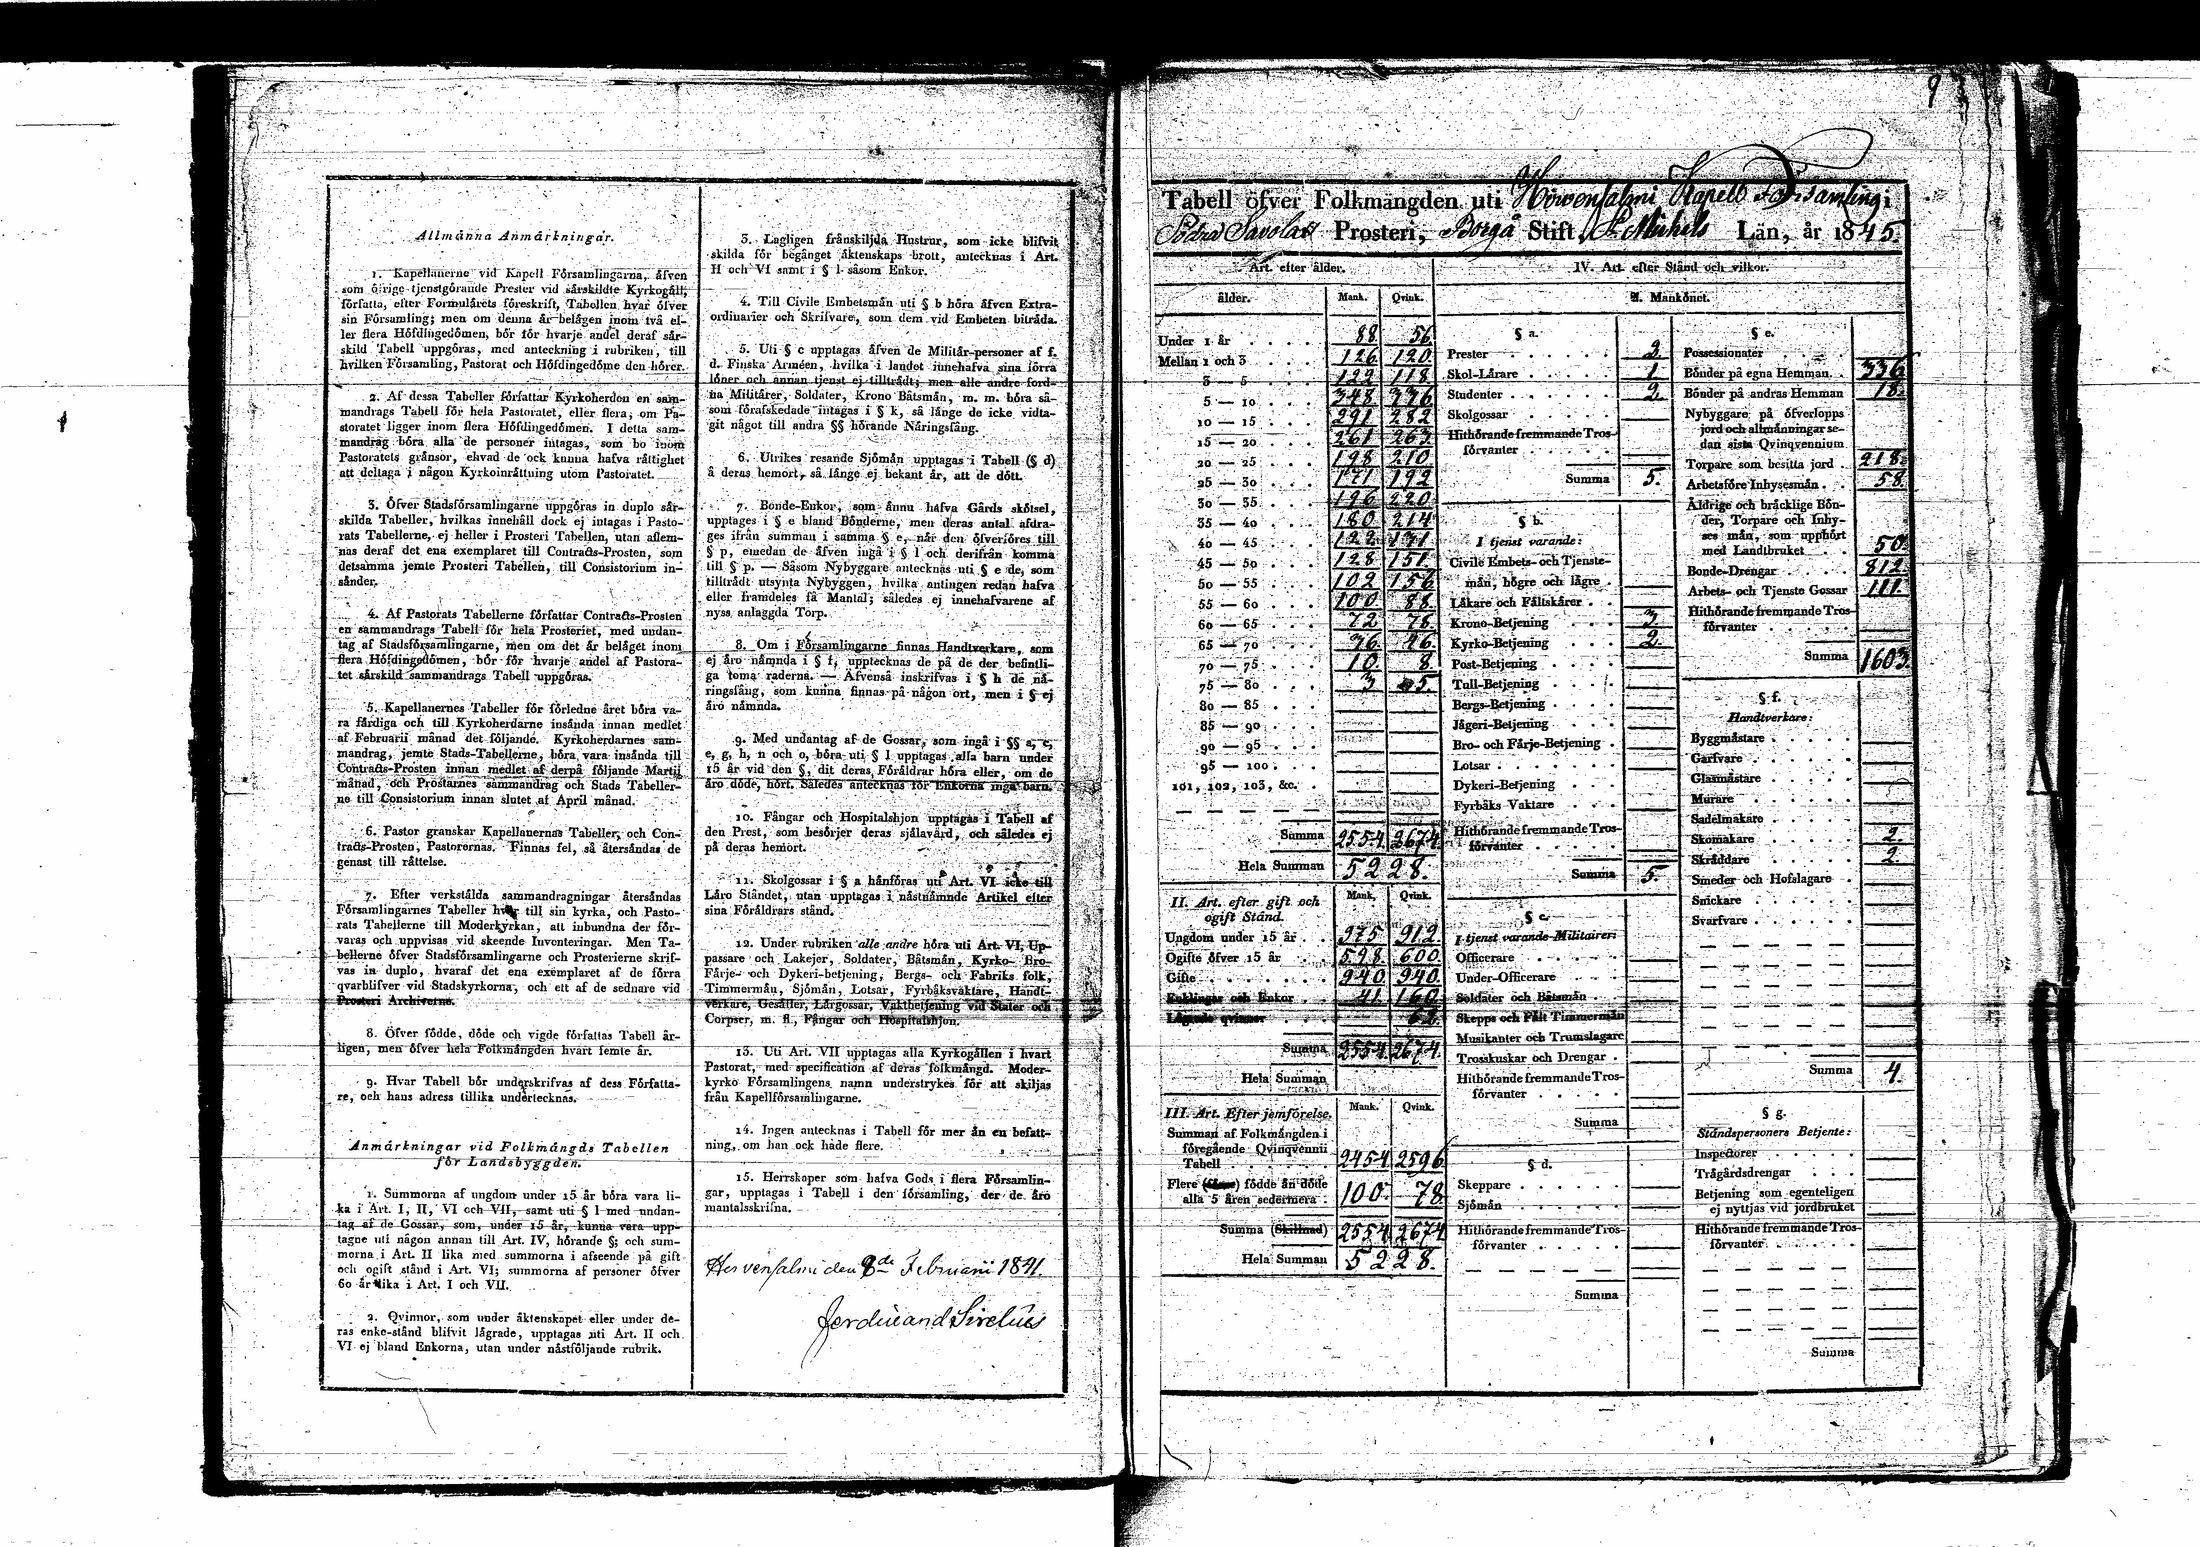 Allmänna Anmärkningar.
1. Kapellanerne vid Kapell Församlingarna, äfven
som öfrige tjenstgörande Prester vid särskildte Kyrkogäll,
författa, efter Formulärets föreskrift, Tabellen hvar öfver
sin Församling; men om denna är belägen inom två el-
ler flera Höfdingedömen, bör för hvarje andel deraf sär-
skild Tabell uppgöras, med anteckning i rubriken, till
hvilken Församling, Pastorat och Höfdingedöme den hörer.
2. Af dessa Tabeller författar Kyrkoherden en sam-
mandrags Tabell för hela Pastoratet, eller flera; om Pa-
storatet ligger inom flera Höfdingedömen. I detta sam-
mandrag böra alla de personer intagas, som bo inom
Pastoratets gränsor, ehvad de ock kunna hafva rättighet
att deltaga i någon Kyrkoinrättning utom Pastoratet.
3. Öfver Stadsförsamlingarne uppgöras in duplo sär-
skilda Tabeller, hvilkas innehåll dock ej intagas i Pasto-
rats Tabellerne, ej heller i Prosteri Tabellen, utan aflem-
nas deraf det ena exemplaret till Contracts-Prosten, som
detsamma jemte Prosteri Tabellen, till Consistorium in-
sänder.
4. Af Pastorats Tabellerne författar Contracts-Prosten
en sammandrags Tabell för hela Prosteriet, med undan-
tag af Stadsförsamlingarne, men om det är beläget inom
flera Höfdingedömen, bör för hvarje andel af Pastora-
tet särskild sammandrags Tabell uppgöras.
5. Kapellanernes Tabeller för förledne året böra va-
ra färdiga och till Kyrkoherdarne insända innan medlet
af Februarii månad det följande. Kyrkoherdarnes sam-
mandrag, jemte Stads-Tabellerne, böra vara insända till
Contracts-Prosten innan medlet af derpå följande Martii
månad, och Prostarnes sammandrag och Stads Tabeller-
ne till Consistorium innan slutet af April månad.
6. Pastor granskar Kapellanernas Tabeller, och Con-
tracts-Prosten, Pastorernas. Finnas fel, så återsändas de
genast till rättelse.
7. Efter verkstälda sammandragningar återsändas
Församlingarnes Tabeller hvar till sin kyrka, och Pasto-
rats Tabellerne till Moderkyrkan, att inbundna der för-
varas och uppvisas vid skeende Inventeringar. Men Ta-
bellerne öfver Stadsförsamlingarne och Prosterierne skrif-
vas in duplo, hvaraf det ena exemplaret af de förra
qvarblifver vid Stadskyrkorna, och ett af de sednare vid
Prosteri Archiverne.
8. Öfver födde, döde och vigde författas Tabell år-
ligen, men öfver hela Folkmängden hvart femte år.
9. Hvar Tabell bör underskrifvas af dess Författa-
re, och hans adress tillika undertecknas.
Anmärkningar vid Folkmängds Tabellen
för Landsbyggden.
1. Summorna af ungdom under 15 år böra vara li-
ka i Art. I, II, VI och VII, samt uti § l med undan-
tag af de Gossar, som, under 15 år, kunna vara upp-
tagne uti någon annan till Art. IV, hörande §; och sum-
morna i Art. II lika med summorna i afseende på gift
och ogift stånd i Art. VI; summorna af personer öfver
60 år lika i Art. I och VII.
2. Qvinnor, som under äktenskapet eller under de-
ras enke-stånd blifvit lägrade, upptagas uti Art. II och
VI ej bland Enkorna, utan under nästföljande rubrik.
3. Lagligen frånskiljda Hustrur, som icke blifvit
skilda för begånget äktenskaps brott, antecknas i Art.
II och VI samt i § l såsom Enkor.
4. Till Civile Embetsmän uti § b höra äfven Extra-
ordinarier och Skrifvare, som dem vid Embeten biträda.
5. Uti § c upptagas äfven de Militär-personer af f.
d. Finska Arméen, hvilka i landet innehafva sina förra
löner och annan tjenst ej tillträdt; men alle andre ford-
na Militärer, Soldater, Krono Båtsmän, m. m. böra så-
som förafskedade intagas i § k, så länge de icke vidta-
git något till andra §§ hörande Näringsfång.
6. Utrikes resande Sjömän upptagas i Tabell (§ d)
å deras hemort, så länge ej bekant är, att de dött.
7. Bonde-Enkor, som ännu hafva Gårds skötsel,
upptages i § e bland Bönderne, men deras antal afdra-
ges ifrån summan i samma § e, när den öfverföres till
§ p, emedan de äfven ingå i § l och derifrån komma
till § p. — Såsom Nybyggare antecknas uti § e de, som
tillträdt utsynta Nybyggen, hvilka antingen redan hafva
eller framdeles få Mantal; således ej innehafvarene af
nyss anlaggda Torp.
8. Om i Församlingarne finnas Handtverkare, som
ej äro nämnda i § f, upptecknas de på de der befintli-
ga toma raderna. — Äfvenså inskrifvas i § h de nä-
ringsfång, som kunna finnas på någon ort, men i § ej
äro nämnda.
9. Med undantag af de Gossar, som ingå i §§ a, c,
e, g, h, n och o, böra uti § l upptagas alla barn under
15 år vid den §, dit deras Föräldrar höra eller, om de
äro döde, hört. Således antecknas för Enkorna inga barn.
10. Fångar och Hospitalshjon upptagas i Tabell af
den Prest, som besörjer deras själavård, och således ej
på deras hemort.
11. Skolgossar i § a hänföras uti Art. VI icke till
Läro Ståndet, utan upptagas i nästnämnde Artikel efter
sina Föräldrars stånd.
12. Under rubriken alle andre höra uti Art. VI, Up-
passare och Lakejer, Soldater, Båtsmän, Kyrko- Bro-
Färje- och Dykeri-betjening, Bergs- och Fabriks folk,
Timmermän, Sjömän, Lotsar, Fyrbåksvaktare, Handt-
verkare, Gesäller, Lärgossar, Vaktbetjening vid Stater och
Corpser, m. fl., Fångar och Hospitalshjon.
13. Uti Art. VII upptagas alla Kyrkogällen i hvart
Pastorat, med specification af deras folkmängd. Moder-
kyrko Församlingens namn understrykes för att skiljas
från Kapellförsamlingarne.
14. Ingen antecknas i Tabell för mer än en befatt-
ning, om han ock hade flere.
15. Herrskaper som hafva Gods i flera Församlin-
gar, upptagas i Tabell i den församling, der de äro
mantalsskrifna.
Hervensalmi den 8de Februarii 1841.
Ferdinand Sirelius
9
Tabell öfver Folkmängden uti Hirvensalmi Kapell Församling i
Södra Savolax Prosteri, Borgå Stift, St Michels Län, år 1845.
Art. efter ålder.
ålder. Mank. Qvink.
Under 1 år 88 56
Mellan 1 och 3 126 120
3 — 5 122 118
5 — 10 348 336
10 — 15 291 282
15 — 20 261 263
20 — 25 198 210
25 — 30 171 192
30 — 35 196 220
35 — 40 180 214
40 — 45 122 131
45 — 50 128 151
50 — 55 102 156
55 — 60 100 88
60 — 65 72 78
65 — 70 36 46
70 — 75 10 8
75 — 80 3 5
80 — 85
85 — 90
90 — 95
95 — 100
101, 102, 103, &c.
Summa 2554 2674
Hela Summan 5228.
II. Art. efter gift och
ogift Stånd. Mank. Qvink.
Ungdom under 15 år 975 912
Ogifte öfver 15 år 598 600
Gifte 940 940
Enklingar och Enkor 41 160
Lägrade qvinnor 62
Summa 2554 2674
Hela Summan
III. Art. Efter jemförelse. Mank. Qvink.
Summan af Folkmängden i
föregående Qvinqvennii
Tabell 2454 2596
Flere födde än döde
alla 5 åren sedermera 100 78
Summa (Skillnad) 2554 2674
Hela Summan 5228.
IV. Art. efter Stånd och vilkor.
A. Mankönet.
§ a.
Prester 2
Skol-Lärare 1
Studenter 2
Skolgossar
Hithörande fremmande Tros-
förvanter
Summa 5.
§ b.
I tjenst varande:
Civile Embets- och Tjenste-
män, högre och lägre
Läkare och Fältskärer
Krono-Betjening 3
Kyrko-Betjening 2
Post-Betjening
Tull-Betjening
Bergs-Betjening
Jägeri-Betjening
Bro- och Färje-Betjening
Lotsar
Dykeri-Betjening
Fyrbåks Vaktare
Hithörande fremmande Tros-
förvanter
Summa 5.
§ c.
I tjenst varande Militairer:
Officerare
Under-Officerare
Soldater och Båtsmän
Skepps och Fält Timmermän
Musikanter och Trumslagare
Trosskuskar och Drengar
Hithörande fremmande Tros-
förvanter
Summa
§ d.
Skeppare
Sjömän
Hithörande fremmande Tros-
förvanter
Summa
§ e.
Possessionater
Bönder på egna Hemman 336
Bönder på andras Hemman 18
Nybyggare på öfverlopps
jord och allmänningar se-
dan sista Qvinqvennium
Torpare som besitta jord 218
Arbetsföre Inhysesmän 58
Äldrige och bräcklige Bön-
der, Torpare och Inhy-
ses män, som upphört
med Landtbruket 50
Bonde-Drengar 812
Arbets- och Tjenste Gossar 111
Hithörande fremmande Tros-
förvanter
Summa 1603
§ f.
Handtverkare:
Byggmästare
Garfvare
Glasmästare
Murare
Sadelmakare
Skomakare 2
Skräddare 2
Smeder och Hofslagare
Snickare
Svarfvare
Summa 4.
§ g.
Ståndspersoners Betjente:
Inspectorer
Trägårdsdrengar
Betjening som egenteligen
ej nyttjas vid jordbruket
Hithörande fremmande Tros-
förvanter
Summa